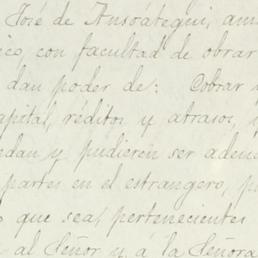 José de Ansoátegui, am
ico con facultad de obrar
dan poder de: Cobrar
apital, réditos y atrasos,
edan y pudieren ser adeu
partes en el estrangero, p
o que sea, pertenecientes
al Señor y á la Señora